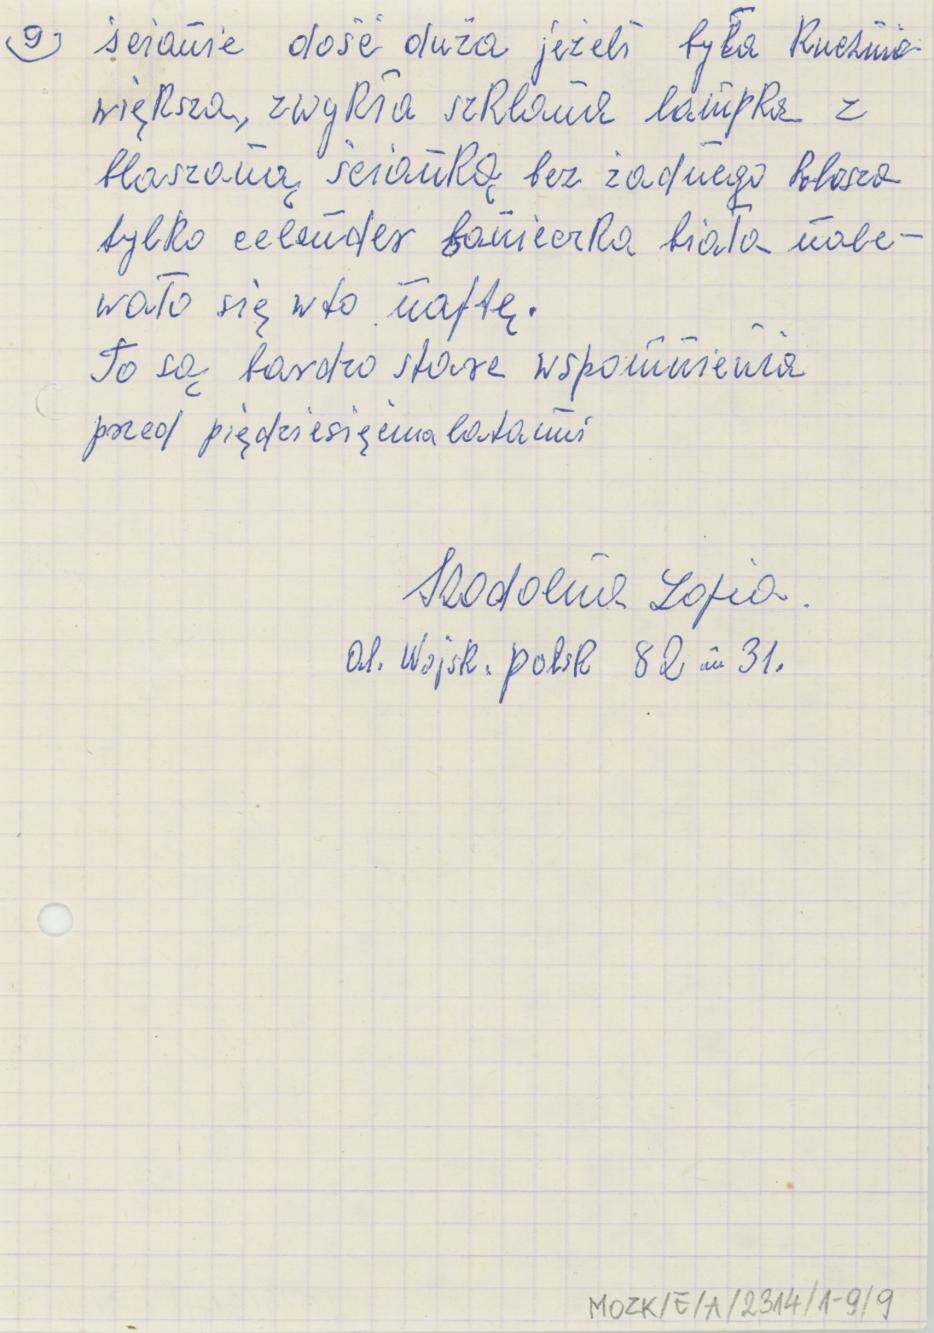 9) ścianie dość duża jeżeli była kuchnia
większa, zwykła szklana lampka z
blaszaną ścianką bez żadnego klosza
tylko celender bańieczka biała nale-
wało się w to naftę.
To są bardzo stare wspomnienia
przed pięździesięcma latami
Szadolna Zofia.
Al. Wojsk. polsk 82 m 31.
MOZK/E/A/2314/1-9/9